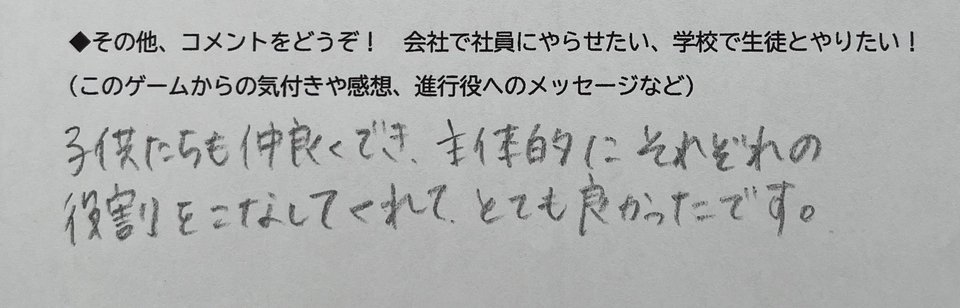 ◆その他、コメントをどうぞ！　会社で社員にやらせたい、学校で生徒とやりたい！
（このゲームからの気付きや感想、進行役へのメッセージなど）
子供たちも仲良くでき、主体的にそれぞれの
役割をこなしてくれて、とても良かったです。